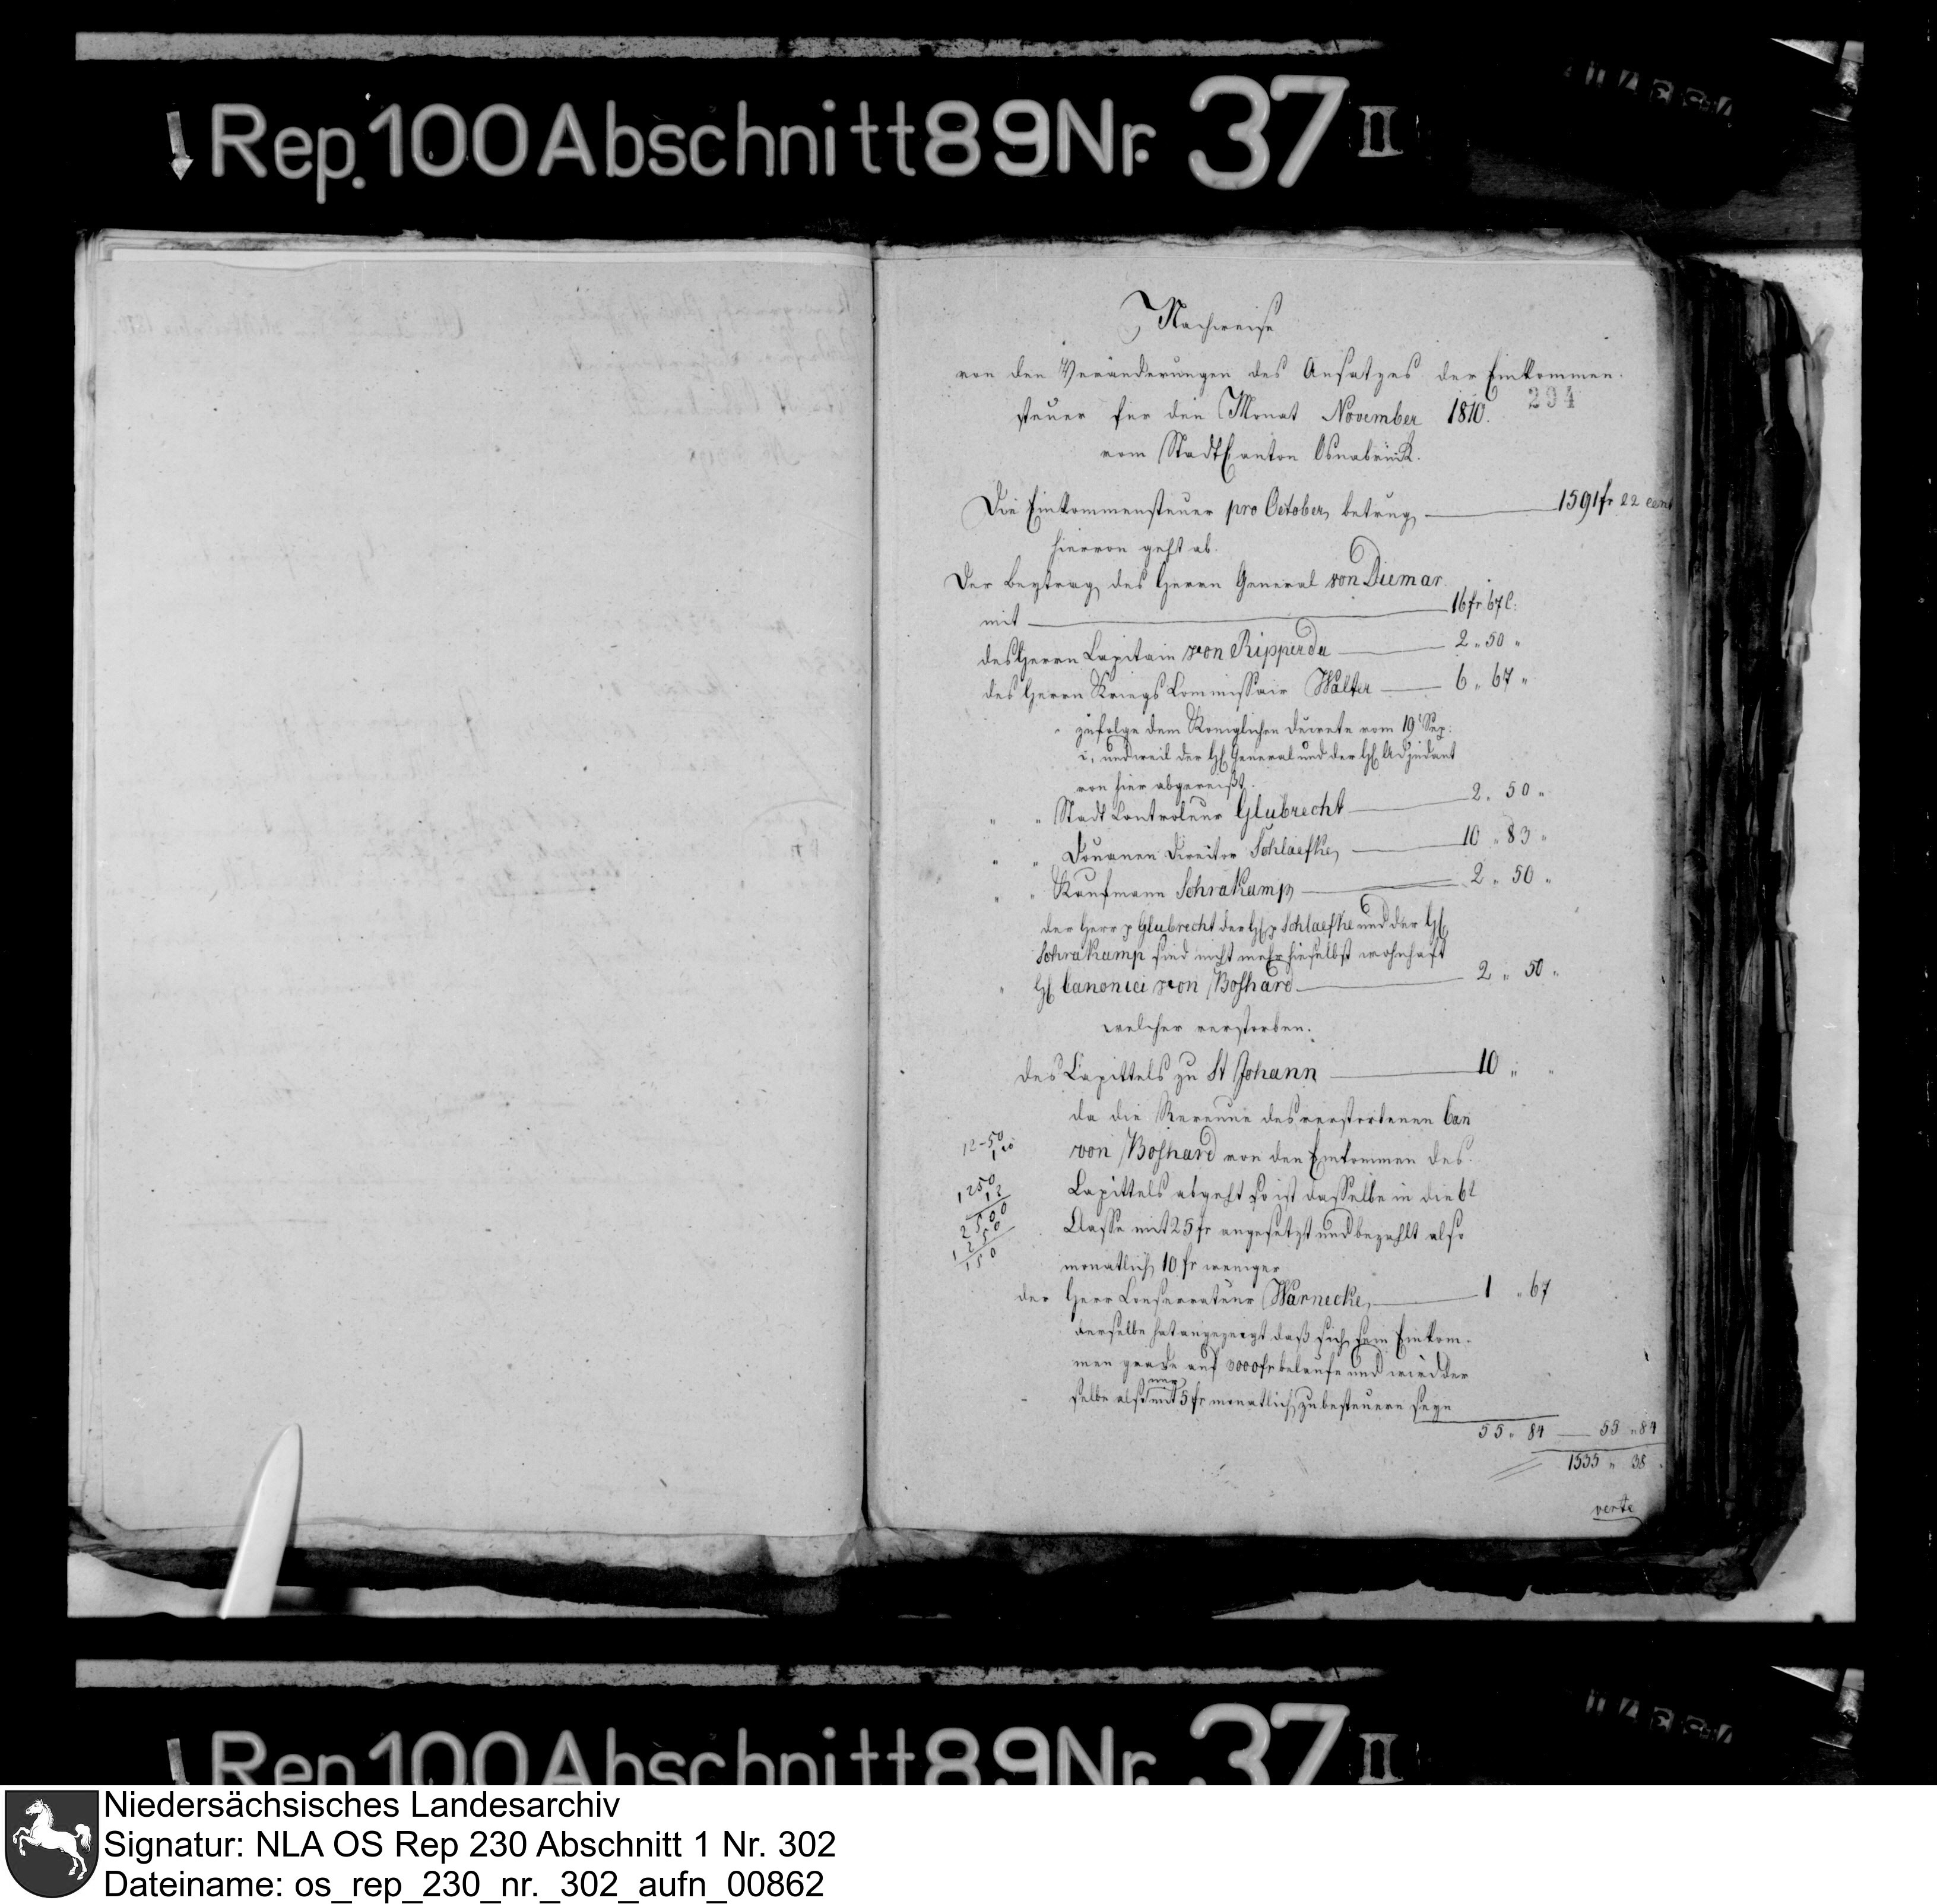 Rep. 100 Abschnitt 89 Nr. 37 II
Nachweise
von den Veränderungen des Ansatzes der Einkommen-
steuer für den Monat November 1810.
294
vom Stadt Canton Osnabrück.
Die Einkommensteuer pro October, betrug, 1591 fr 22 cent
hiervon geht ab.
Der Beytrag des Herrn General von Diemar
mit 16 fr. 67 C:
des Herrn Capitain von Ripperda 2 „ 50 „
des Herrn Kriegs Commissair Walter 6 „ 67 „
zufolge dem Königlichen Decrete vom 19t Sep:
und weil der H General und der H Adjudant
von hier abgereißt.
„ „ Stadt Controleur Glubrecht 2 „ 50 „
„ „ Douanen Director Schlaefke, 10 „ 83 „
„ „ Kaufmann Schrakamp 2 „ 50 „
der Herr p Glubrecht der H p Schlaefke und der H
Schrakamp sind nicht mehr hieselbst wohnhaft
„ H Canonici von Boshard 2 „ 50 „
welcher verstorben.
des Capittels zu St Johann 10 „ „
da die Revenüe des verstorbenen Can
von Boshard von den Einkommen des
Capittels abgeht so ist dasselbe in die 6t
Classe mit 25 fr angesetzt und bezahlt also
monatlich 10 fr weniger
12-50
1250
12
2500
1250
150
der Herr Conservateur Warnecke, 1 „ 67
derselbe hat angezeigt daß sich sein Einkom-
men grade auf 3000 fr belaufe und wird der
selbe also nur mit 5 fr monatlich zu besteuern seyn
55 „ 84 — 55 „ 84
1535 „ 38
verte
Rep. 100 Abschnitt 89 Nr. 37 II
Niedersächsisches Landesarchiv
Signatur: NLA OS Rep 230 Abschnitt 1 Nr. 302
Dateiname: os_rep_230_nr._302_aufn_00862